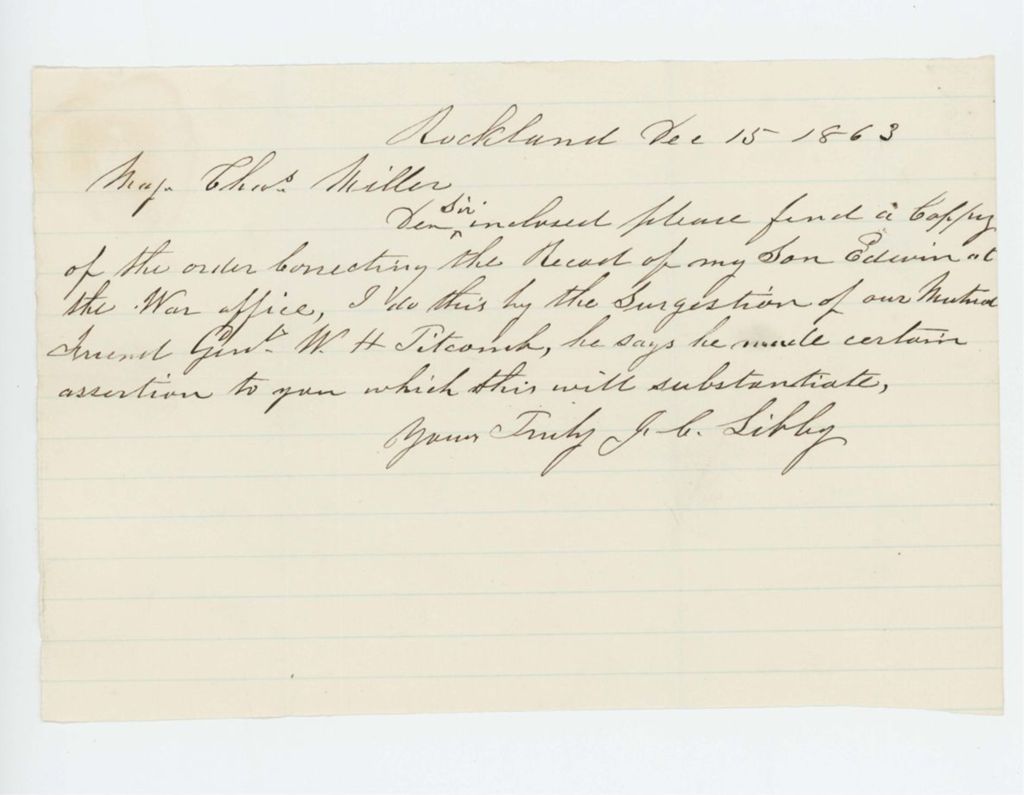 Rockland Dec 15 1863
Maj. Thos. Miller
Dear Sir inclosed please find a Coppy
of the order Correcting the Record of my Son Edwin at
the War office, I do this by the Surgestion of our Mutual
friend Genl. W. H Titcomb, he says he made certain
assertion to you which this will substantiate,
Yours Truly J. C. Libby